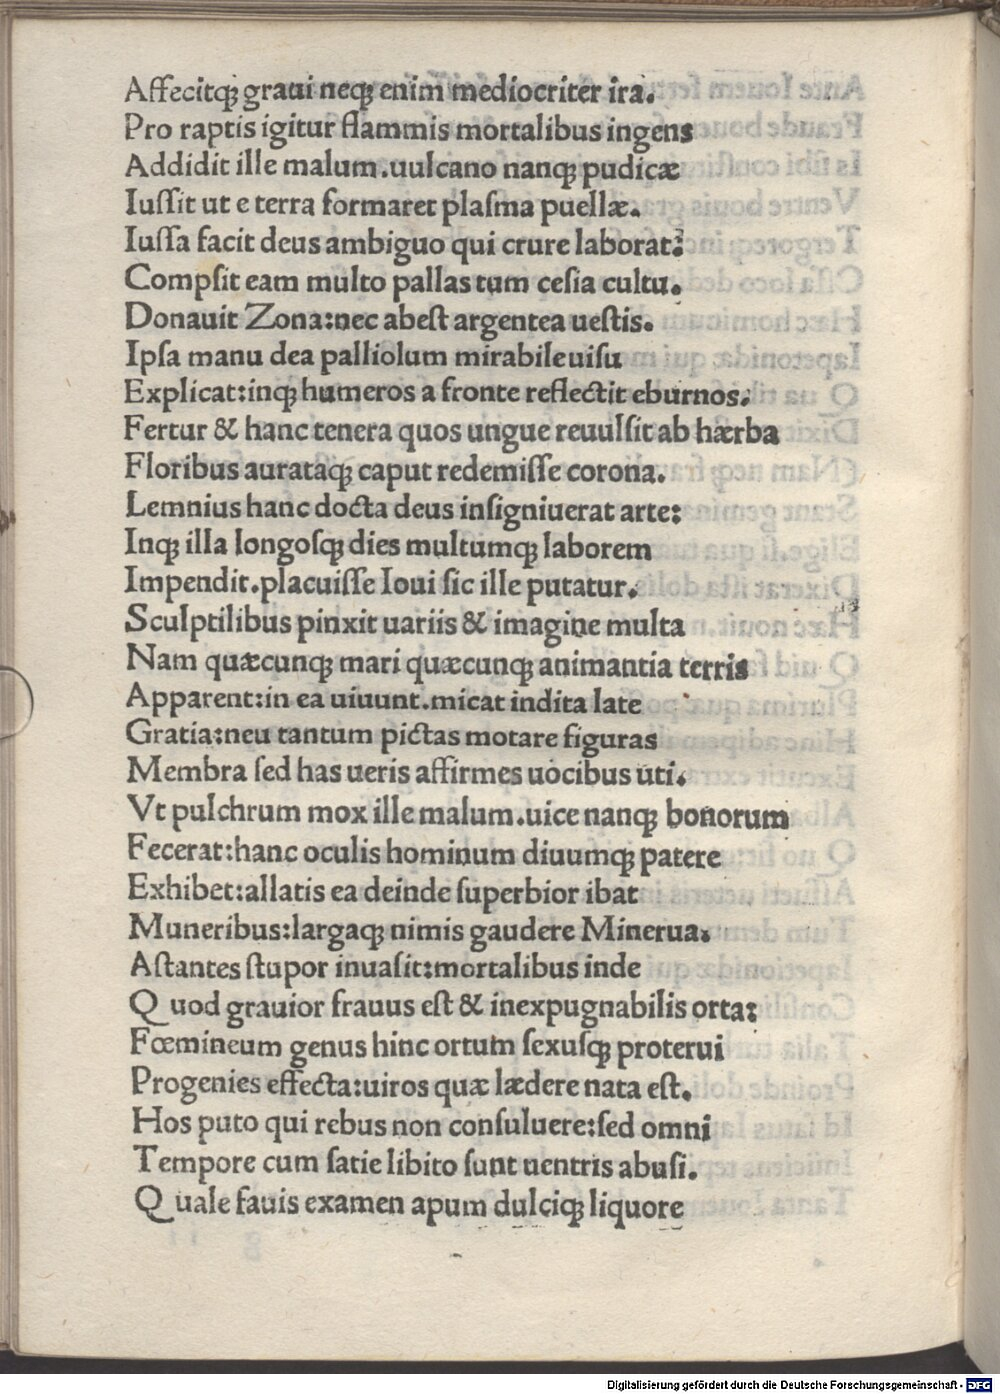 Affecitqꝫ graui neqꝫ enim mediocriter ira.
Pro raptis igitur flammis mortalibus ingens
Addidit ille malum.uulcano nanqꝫ pudicæ
Iuſſit ut e terra formaret plaſma puellæ.
Iuſſa facit deus ambiguo qui crure laborat:
Compſit eam multo pallas tum ceſia cultu.
Donauit Zona:nec abeſt argentea ueſtis.
Ipſa manu dea palliolum mirabile uiſu
Explicat:inqꝫ humeros a fronte reflectit eburnos.
Fertur & hanc tenera quos ungue reuulſit ab hærba
Floribus aurataqꝫ caput redemiſſe corona.
Lemnius hanc docta deus inſigniuerat arte:
Inqꝫ illa longoſqꝫ dies multumqꝫ laborem
Impendit.placuiſſe Ioui ſic ille putatur.
Sculptilibus pinxit uariis & imagine multa
Nam quæcunqꝫ mari quæcunqꝫ animantia terris
Apparent:in ea uiuunt.micat indita late
Gratia:neu tantum pictas motare figuras
Membra ſed has ueris affirmes uocibus uti.
Vt pulchrum mox ille malum.uice nanqꝫ bonorum
Fecerat:hanc oculis hominum diuumqꝫ patere
Exhibet:allatis ea deinde ſuperbior ibat
Muneribus:largaqꝫ nimis gaudere Minerua.
Aſtantes ſtupor inuaſit:mortalibus inde
Quod grauior frauus eſt & inexpugnabilis orta:
Fœmineum genus hinc ortum ſexuſqꝫ proterui
Progenies effecta:uiros quæ lædere nata eſt.
Hos puto qui rebus non conſuluere:ſed omni
Tempore cum ſatie libito ſunt uentris abuſi.
Quale fauis examen apum dulciqꝫ liquore
Digitalisierung gefördert durch die Deutsche Forschungsgemeinschaft - DFG